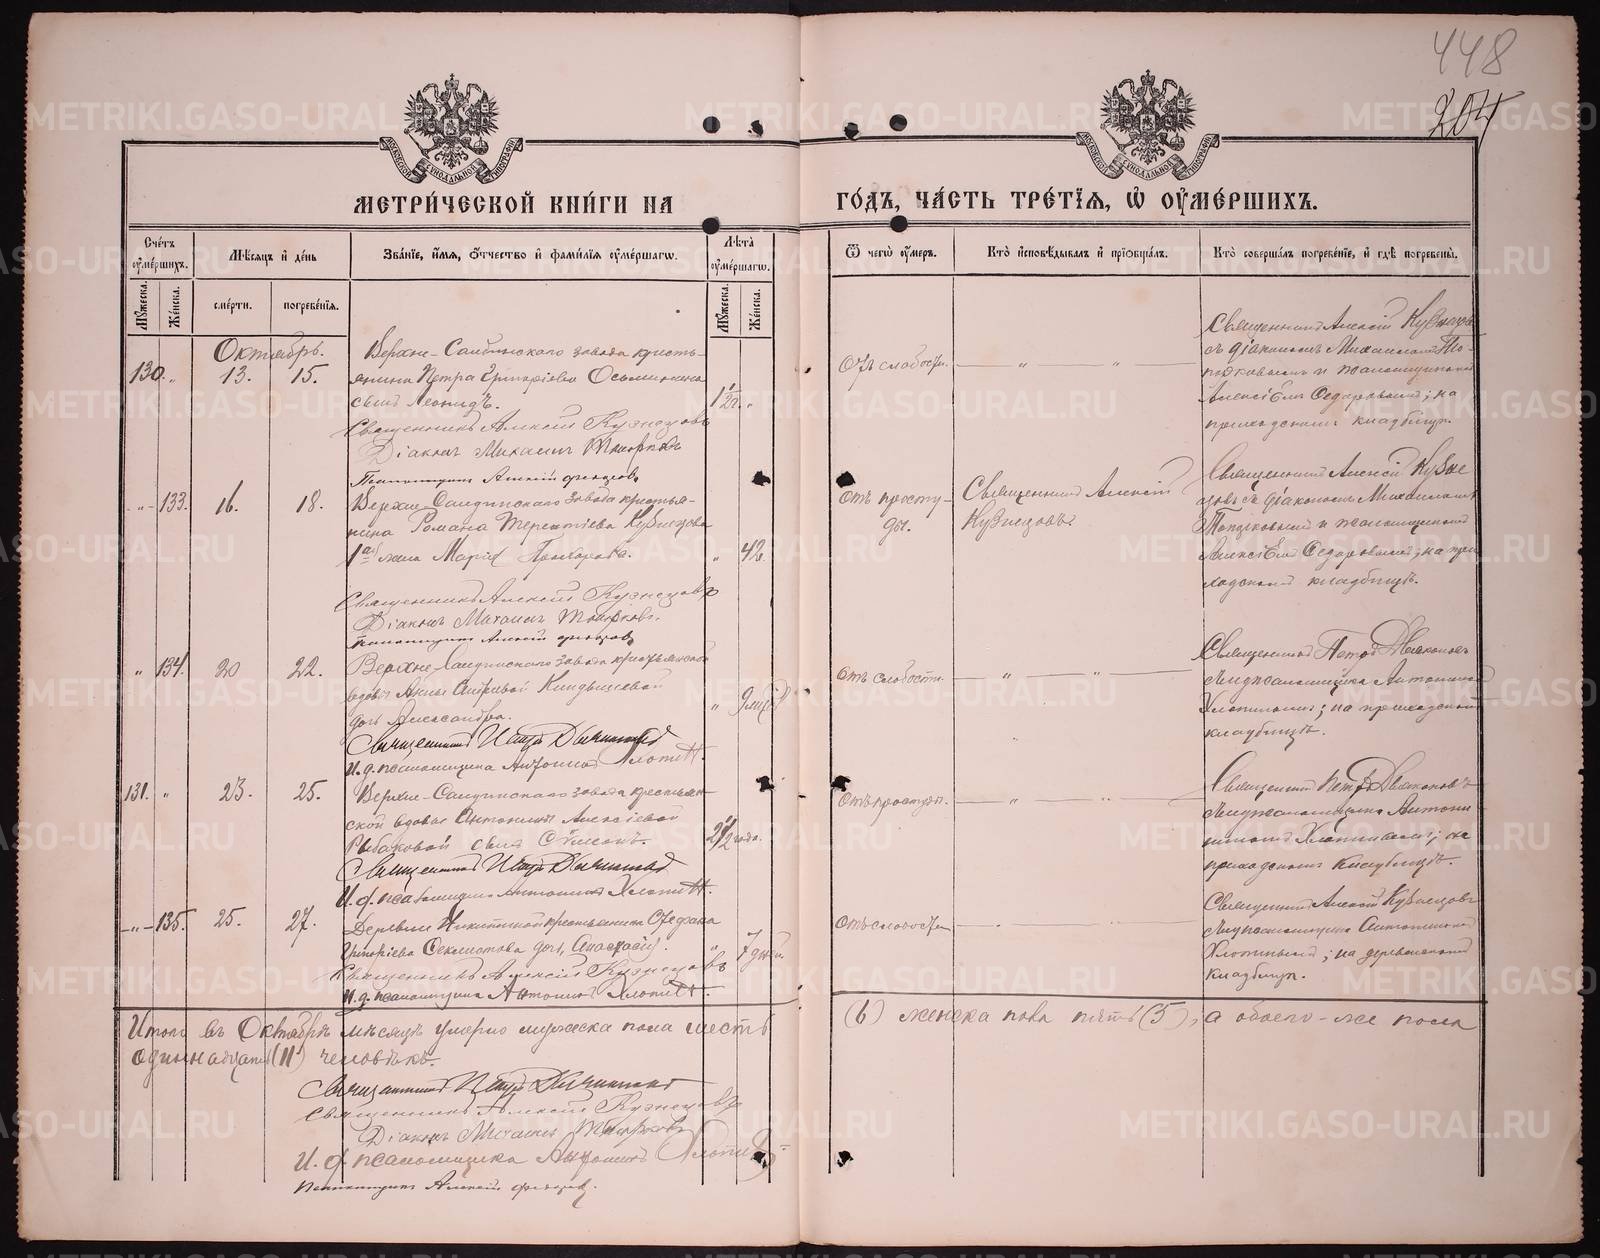 448
204
МЕТРИ́ЧЕСКОЙ КНИ́ГИ НА
ГО́ДЪ, ЧА́СТЬ ТРЕ́ТІЯ, Ѽ ОУ҆МЕ́РШИХЪ.
Сче́тъ оу҆ме́ршихъ.
Мѣ́сяцъ и҆ де́нь
Зва́нїе, и҆́мя, ѻ҆́тчество и҆ фами́лїѧ оу҆ме́ршагѡ.
Лѣ́та оу҆ме́ршагѡ.
Ѿ чегѡ̀ оу҆́меръ.
Кто̀ и҆сповѣ́дывалъ и҆ прїѡбща́лъ.
Кто̀ соверша́лъ погребе́нїе, и҆ гдѣ̀ погребены̀.
Мꙋ́жеска.
Же́нска.
сме́рти.
погребе́нїѧ.
Мꙋ́жеска.
Же́нска.
Октябрь.
130. „ 13. 15.
Верхне-Салдинскаго завода кресть-
янина Петра Григоріева Осьминина
сынъ Леонидъ.
Священникъ Алексій Кузнецовъ
Діаконъ Михаилъ
Псаломщикъ Алексій
Отъ слабости.
Священникъ Алексій Кузнецовъ
съ діакономъ Михаиломъ
и псаломщикомъ
Алексіемъ Ѳедоровымъ; на
приходскомъ кладбищѣ.
-„- 133. 16. 18.
Верхне-Салдинскаго завода крестья-
нина Романа Терентіева Кузнецова
1ая жена Марія
„ 42.
Священникъ Алексій Кузнецовъ
Діаконъ Михаилъ
Псаломщикъ Алексій
Отъ просту-
ды.
Священникъ Алексій
Кузнецовъ.
Священникъ Алексій Кузне
цовъ съ діакономъ Михаиломъ
и псаломщикомъ
Алексіемъ Ѳедоровымъ; на при
ходскомъ кладбищѣ.
„ 134. 20 22.
Верхне-Салдинскаго завода крестьянской
вдовы Анны
дочь Александра.
„ 9 мѣс.
Священникъ Петръ
И. д. псаломщика Антонинъ Хлопинъ.
Отъ слабости.
Священникъ Петръ
псаломщика Антониномъ
Хлопинымъ; на приходскомъ
кладбищѣ.
131. „ 23. 25.
Верхне-Салдинскаго завода крестьян-
ской вдовы Антонины Алексіевой
Рыбаковой сынъ Сѵмеонъ.
2 1/2 года.
Священникъ Петръ
И. д. псаломщика Антонинъ Хлопинъ.
Отъ простуды.
Священникъ Петръ
псаломщика Антони
номъ Хлопинымъ; на
приходскомъ кладбищѣ.
-„- 135. 25. 27.
Деревни Никитиной крестьянина Стефана
Григоріева Ѳеклистова дочь, Анастасія.
„ 7 дней.
Священникъ Алексій Кузнецовъ
И. д. псаломщика Антонинъ Хлопинъ.
Отъ слабости
Священникъ Алексій Кузнецовъ
псаломщика Антониномъ
Хлопинымъ; на деревенскомъ
кладбищѣ.
Итого въ Октябрѣ мѣсяцѣ умерло мужеска пола шесть (6) женска пола пять (5), а обоего-же пола
одиннадцать (11) человѣкъ.
Священникъ Петръ
Священникъ Алексій Кузнецовъ
Діаконъ Михаилъ
И. д. псаломщика Антонинъ Хлопинъ
Псаломщикъ Алексій
METRIKI.GASO-URAL.RU